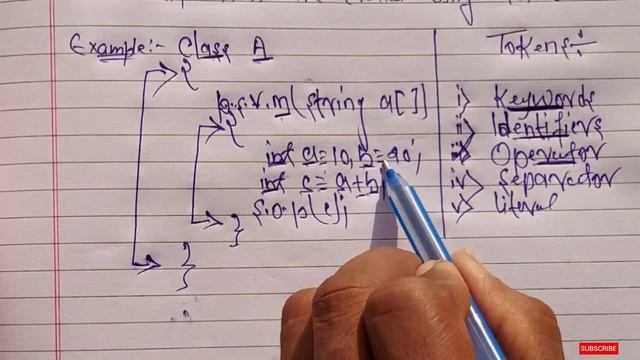 Example:- Class A
{
p.s.v.m(string a[])
{
int a=10, b=20;
int c = a+b;
s.o.p(c);
}
}
Tokens:-
i) Keywords
ii) Identifiers
iii) Operator
iv) Separator
v) literal
SUBSCRIBE